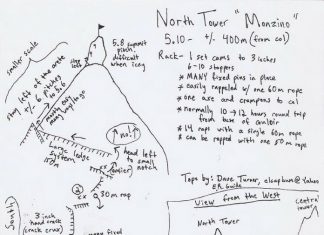 North Tower "Monzino"
5.10- +/- 400m (from col)
Rack- 1 set cams to 3 inches
6-10 stoppers
* MANY fixed pins in place
* easily rappeled w/ one 60m rope
* one axe and crampons to col
* normally 10→12 hours round trip
from base of couloir
* 14 raps with a single 60m rope
* can be rapped with one 50m rope
Topo by: Dave Turner, elcapbum@Yahoo
View from the West
central
tower
North Tower
smaller scale
5.8 summit
pitch.
difficult
when icey
step
left
stay left of the arete
6 pitches
to 5.8
mostly easy
Large ledge
System
↑ no! ↑
head left
to small
notch
easier
xx
30m rap
South
3 inch
hand crack
(crack crux)
many fixed